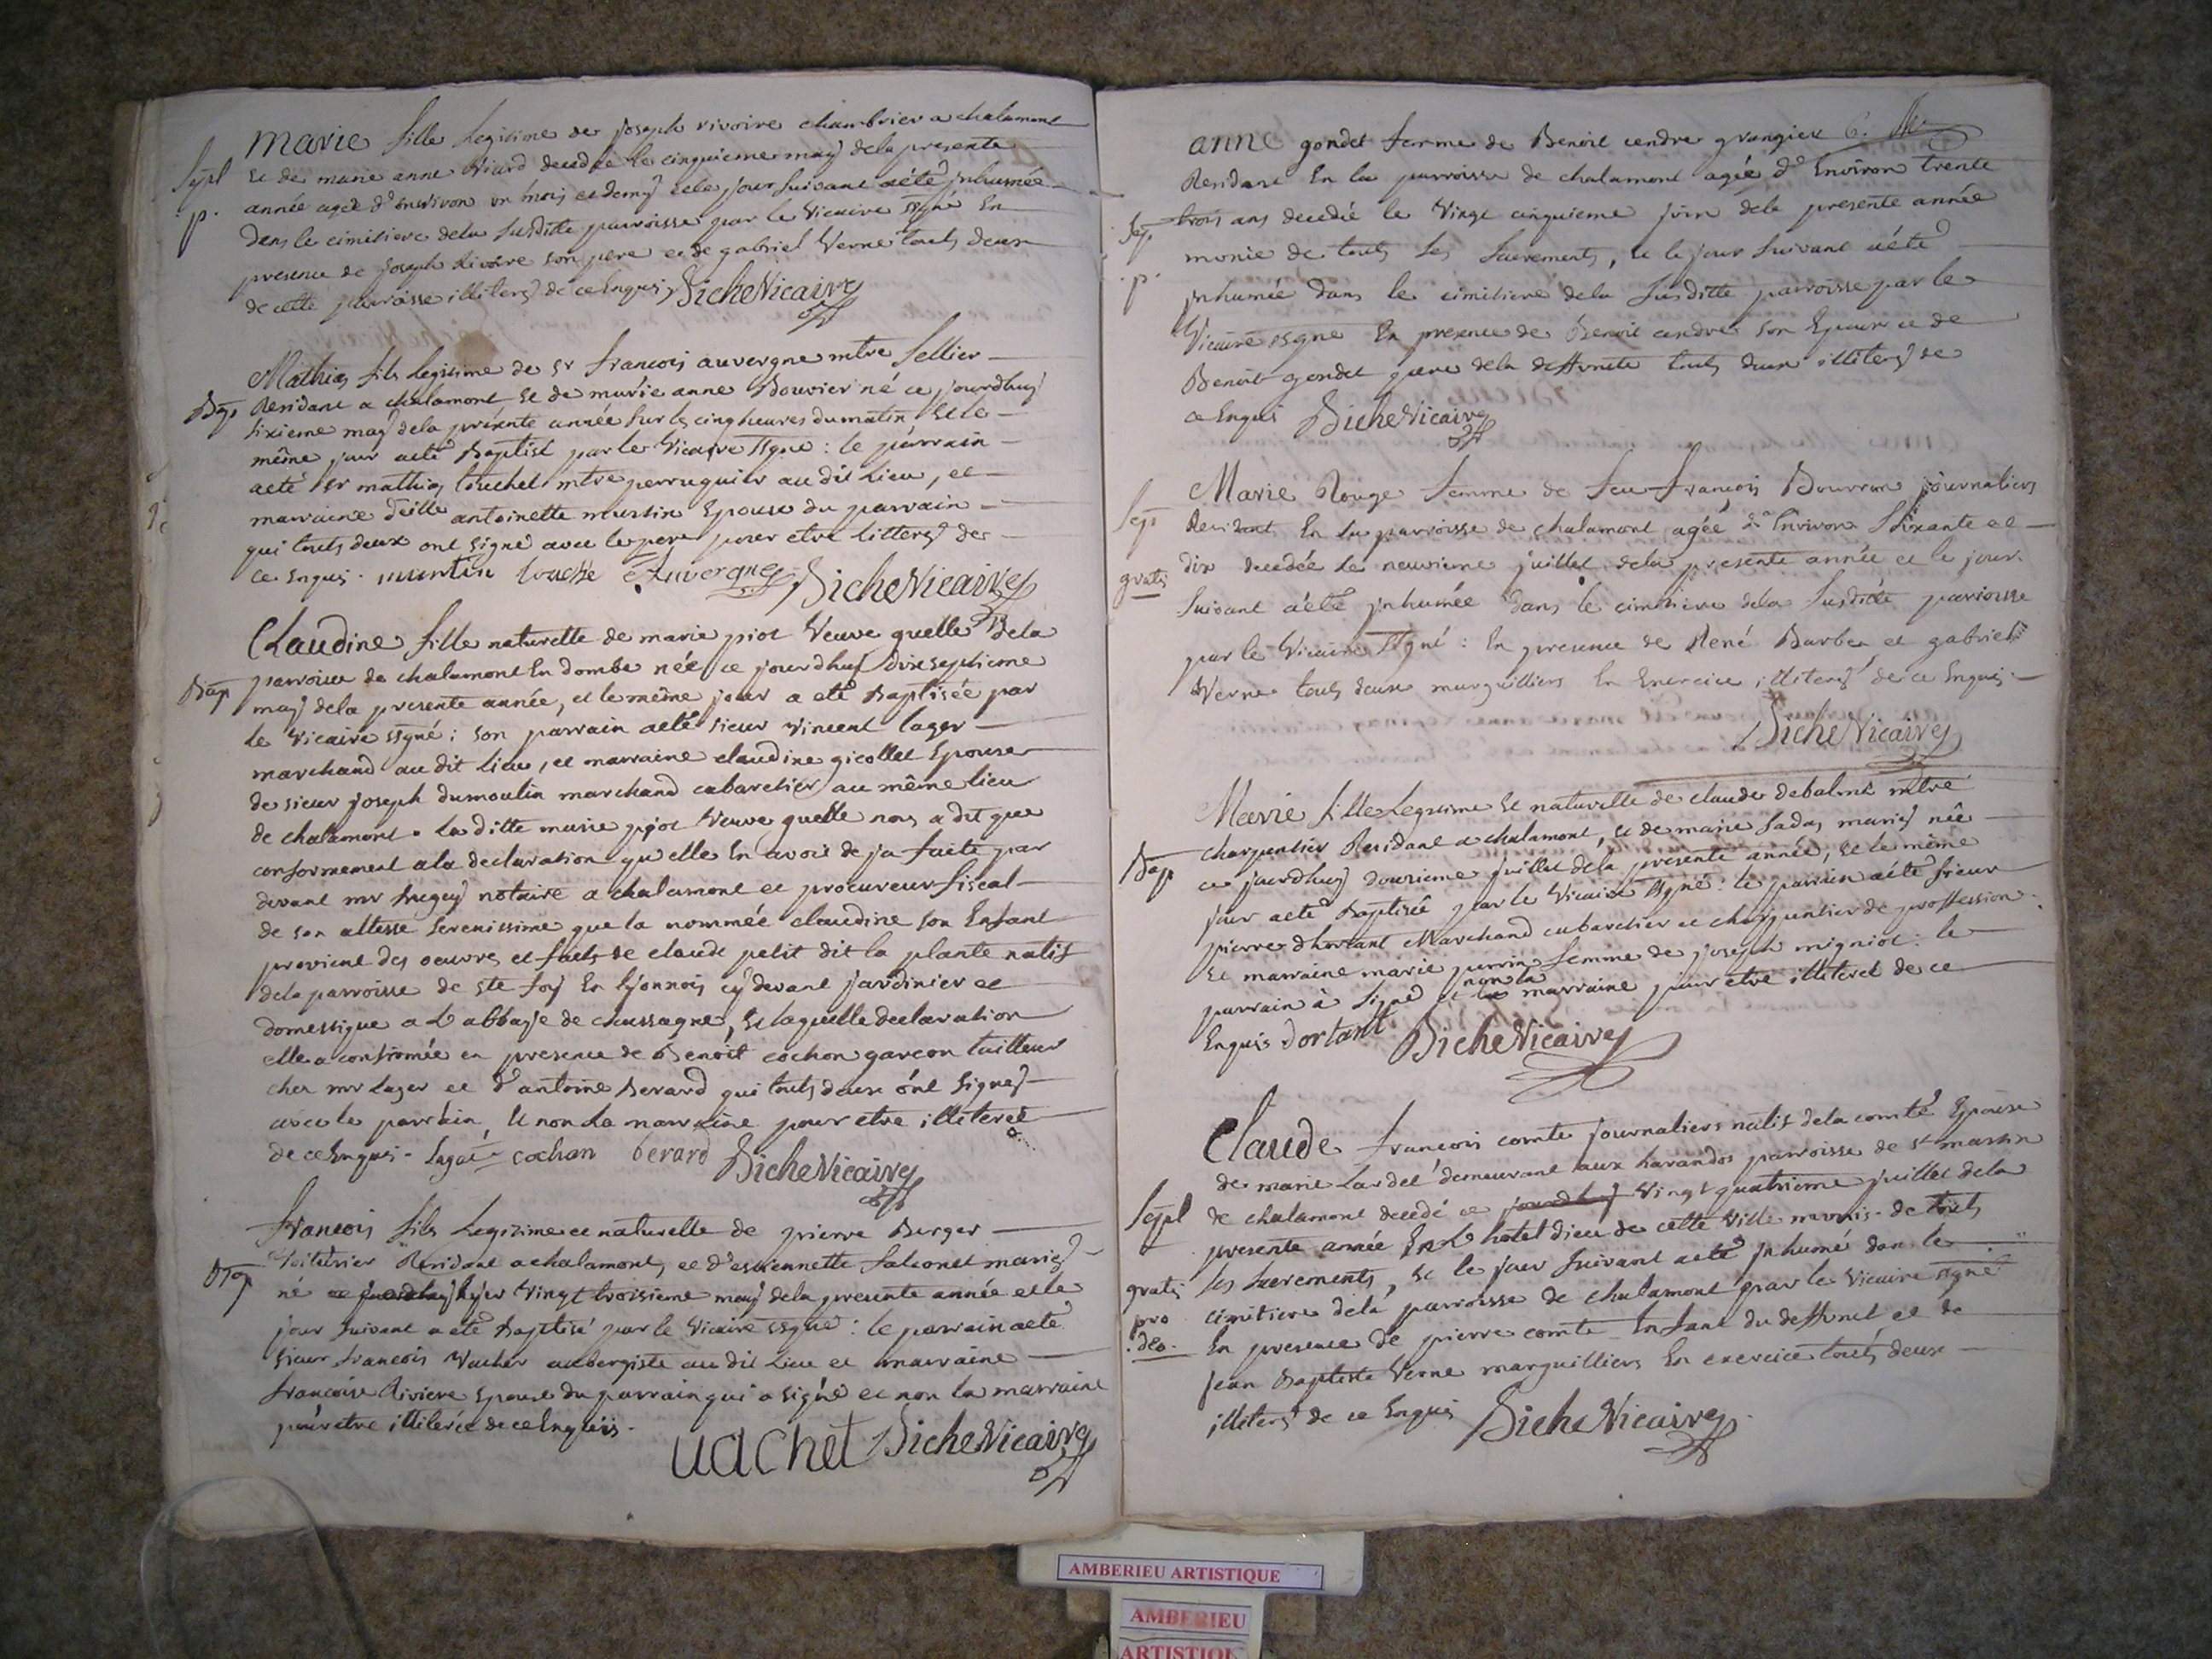 marie fille Legitime de joseph rivoire chambrier a chalamont
Sepl et de marie anne Vicard decedée le cinquieme may dela presente
.p. année agée d'environ un mois et demy et le jour suivant a été inhumée
dans le cimitiere dela susditte parroisse par le Vicaire ssgné En
presence de joseph Rivoire son pere et de gabriel Verne touts deux
de cette parroisse illiterés de ce Enquis DicheVicaire
Mathias fils legitime de sr francois auvergne mtre sellier
Bap. Residant a chalamont et de marie anne Bouvier né ce jourdhuy
sixieme may dela présente année sur les cinq heures du matin et le
même jour a été Baptisé par le Vicaire ssgné : le parrain
a eté sr mathias touchet mtre perruquier au dit Lieu, et
marraine delle antoinette murtin Epouse du parrain
qui touts deux ont signé avec le pere pour etre litterés de
ce enquis. murtin Auvergne DicheVicaire
Claudine fille naturelle de marie piot Veuve quelle dela
Bap parroisse de chalamont En dombe née ce jourdhuy dixseptieme
may dela presente année, et le même jour a eté Baptisée par
le Vicaire ssgné : son parrain a eté sieur vincent lager
marchand au dit Lieu, et marraine claudine gicollet Epouse
de sieur joseph dumoulin marchand cabaretier au même lieu
de chalamont. la ditte marie piot Veuve quelle nous a dit que
conformement a la declaration qu'elle En avoit deja faite par
devant mr notaire a chalamont et procureur fiscal
de son altesse serenissime que la nommée claudine son Enfant
provient des oeuvres et faits de claude petit dit la plante natif
dela parroisse de ste foy En lyonnois cy devant jardinier et
domestique a L'abbaye de chassagne, et laquelle declaration
elle a confirmée en presence de Benoit cochon garcon tailleur
chez mr Lager et d'antoine Berard qui touts deux ont signés
avec le parrain, et non la marraine pour etre illiterée
de ce Enquis. lagai cochan berard DicheVicaire
francois fils Legitime et naturelle de pierre Berger
Bap Voiturier Residant a chalamont, et d'estiennette falconet mariés
né ce jourdhuy hyer Vingt troisieme may dela presente année et le
jour suivant a eté Baptisé par le Vicaire ssgné : le parrain a eté
sieur francois Vacher aubergiste au dit Lieu et marraine
francoise Riviere Epouse du parrain qui a signé et non la marraine
pour etre illiterée de ce Enquis.
uachet DicheVicaire
anne gondet femme de Benoit cendre grangier 6.
Residant En la parroisse de chalamont agée d'Environ trente
Sep. trois ans decedée le Vingt cinquieme juin dela presente année
.p. munie de touts les sacrements, et le jour suivant a été
inhumée dans le cimitiere dela susditte parroisse par le
Vicaire ssgné En presence de Benoit cendre son Epoux et de
Benoit gondet pere dela deffunte touts deux illiterés de
ce Enquis DicheVicaire
Marie Rouge femme de feu francois Bourron journaliers
Sep Residant En la parroisse de chalamont agée d'Environ soixante et
gratis dix decedée le neuvieme juillet dela presente année et le jour
suivant a été inhumée dans le cimitiere dela susditte parroisse
par le Vicaire ssgné : En presence de René Barbex et gabriel
Verne touts deux marguilliers En Exercice illiterés de ce Enquis.
DicheVicaire
Marie fille Legitime et naturelle de claude debalme mtre
Bap charpentier Residant a chalamont, et de marie fadas mariés née
ce jourdhuy douzieme juillet dela presente année, et le même
jour a eté Baptisée par le Vicaire ssgné : le parrain a été sieur
pierre dhortant Marchand cabaretier et charpentier de proffession.
et marraine marie perrin femme de joseph migniot : le
parrain a signé et non la marraine pour etre illiteret de ce
Enquis dortant DicheVicaire
Claude francois comte journaliers natif dela comté Epouse
de marie Lardet demeurant aux havandos parroisse de st martin
Sepl de chalamont decedé ce jourdhuy Vingt quatrieme juillet dela
presente année En L'hotel dieu de cette Ville munis de touts
gratis les sacrements, et le jour suivant a eté inhumé dans le
pro cimitiere dela parroisse de chalamont par le Vicaire ssgné
.deo. En presence de pierre comte Enfant du deffunct et de
jean Baptiste Verne marguilliers En exercice touts deux
illiterés de ce Enquis DicheVicaire
AMBERIEU ARTISTIQUE
AMBERIEU
ARTISTIQUE